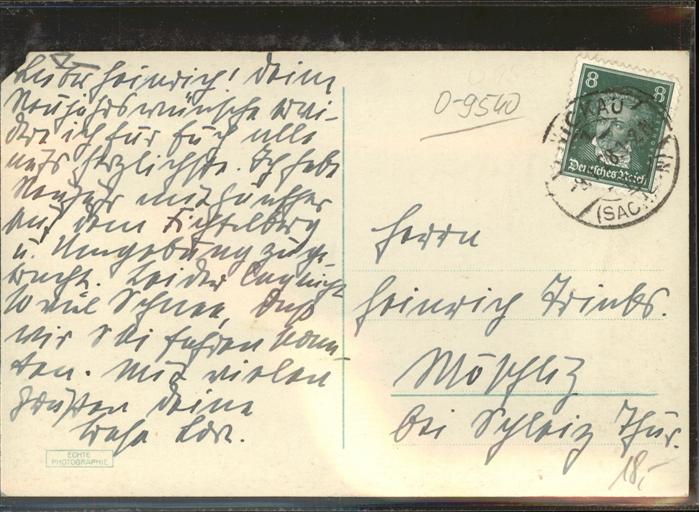 Lieber Heinrich! Deine
Neujahrswünsche erwi-
dere ich für Euch alle
aufs herzlichste. Ich habe
Neujahr mit Günther
auf dem Fichtelberg
u. Umgebung zuge-
bracht. Leider lag nicht
so viel Schnee, daß
wir Ski fahren konn-
ten. Mit vielen
Grüßen Deine
ECHTE
PHOTOGRAPHIE
0-9540
8 8
Deutsches Reich
ZWICKAU
(SACHSEN)
Herrn
Heinrich Trinks.
Möschlitz
bei Schleiz Thür.
18,-